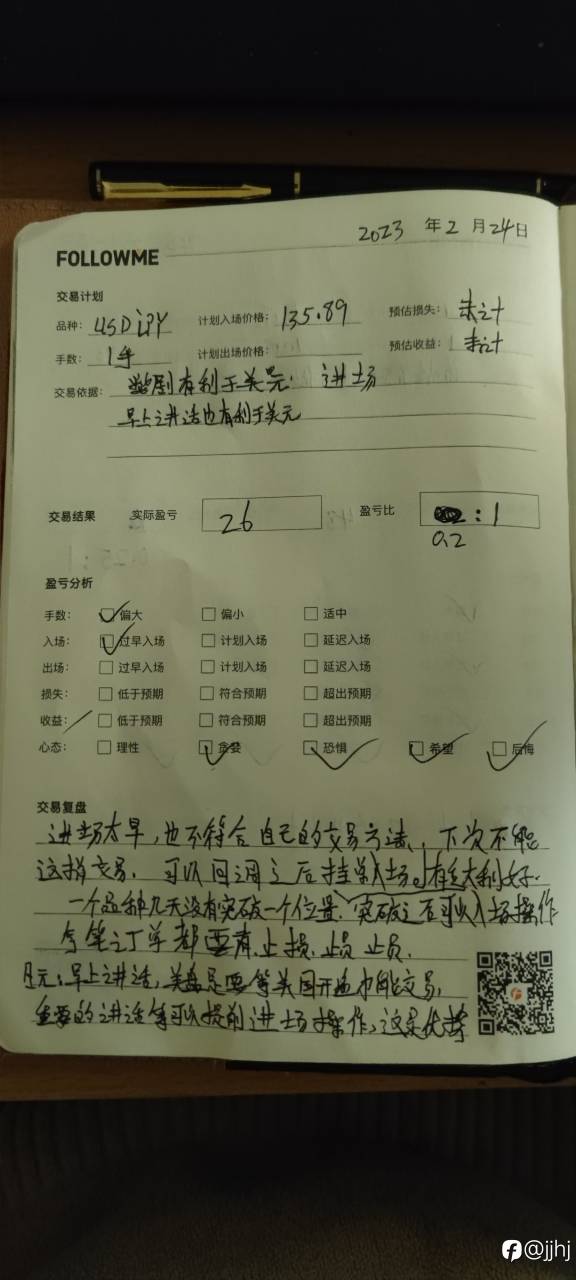 2023 年 2 月 24 日
FOLLOWME
交易计划
品种: USDJPY 计划入场价格: 135.89 预估损失: 未计
手数: 1手 计划出场价格: 预估收益: 未计
交易依据: 数剧有利于美元. 进场
早上讲话也有利于美元
交易结果 实际盈亏 26 盈亏比 : 1
0.2
盈亏分析
手数: 偏大 偏小 适中
入场: 过早入场 计划入场 延迟入场
出场: 过早入场 计划入场 延迟入场
损失: 低于预期 符合预期 超出预期
收益: 低于预期 符合预期 超出预期
心态: 理性 贪婪 恐惧 希望 后悔
交易复盘
进场太早,也不符合自己的交易方法、下次不能
这样交易. 可以回调之后挂单入场.有重大利好.
一个品种几天没有突破一个位置、突破过后可以入场操作
每笔订单都要有止损.止损 止损.
日元:早上讲话,美盘是要等美国开盘才能交易,
重要的讲话等可以提前进场操作,这是优势
@jjhj